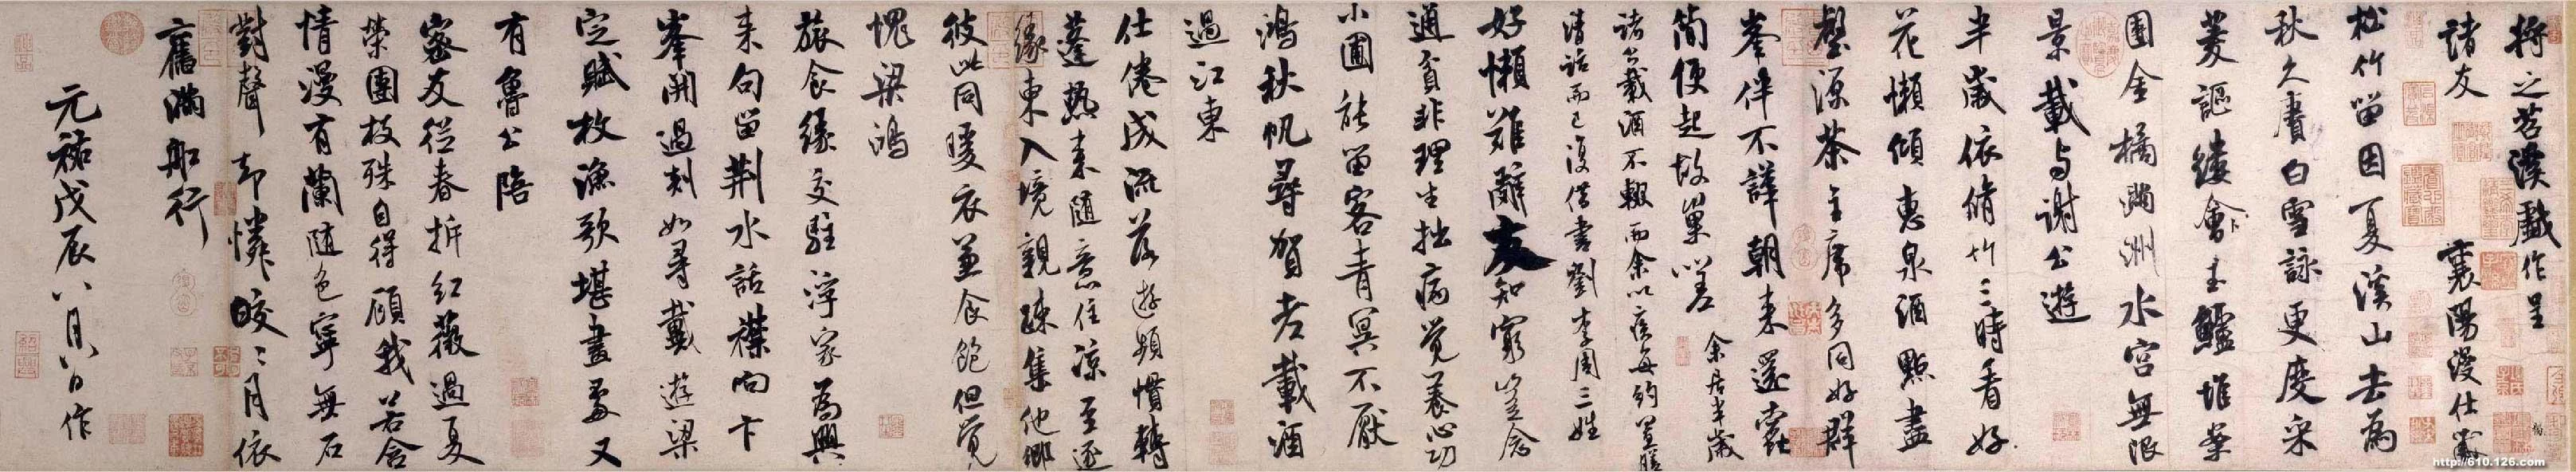 將之苕溪戲作呈
諸友 襄陽漫仕黻
松竹留因夏溪山去為
秋久賡白雪詠更度采
菱謳縷會玉鱸堆案
團金橘滿洲水宮無限
景載与謝公遊
半歲依脩竹三時看好
花懶傾惠泉酒點盡
壑源茶主席多同好群
峯伴不譁朝来還蠹
簡便起故巢嗟 余居半歲
諸公載酒不輟而余以疾每約置膳
清話而已復借書劉李周三姓
好懶難辭友知窮豈念
通貧非理生拙病覺養心功
小圃能留客青冥不厭
鴻秋帆尋賀老載酒
過江東
仕倦成流落遊頻慣轉
蓬熱来隨意住涼至逐
緣東入境親疎集他鄉
彼此同暖衣兼食飽但覺
愧梁鴻
旅食緣交駐浮家為興
来句留荆水話襟向卞
峯開過剡如尋戴遊梁
定賦枚漁歌堪畫處又
有魯公陪
密友從春拆紅薇過夏
榮團枝殊自得顧我若含
情漫有蘭隨色寧無石
對聲却憐皎:月依
舊滿船行
元祐戊辰八月八日作
http://610.126.com/